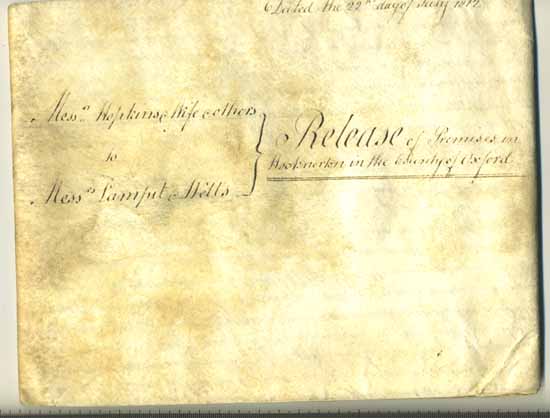 Dated the 22nd day of July
Messrs Hopkins & Wife & others
to
Messrs Lamput & Wells
Release of Premises in
Hooknorton in the County of Oxford